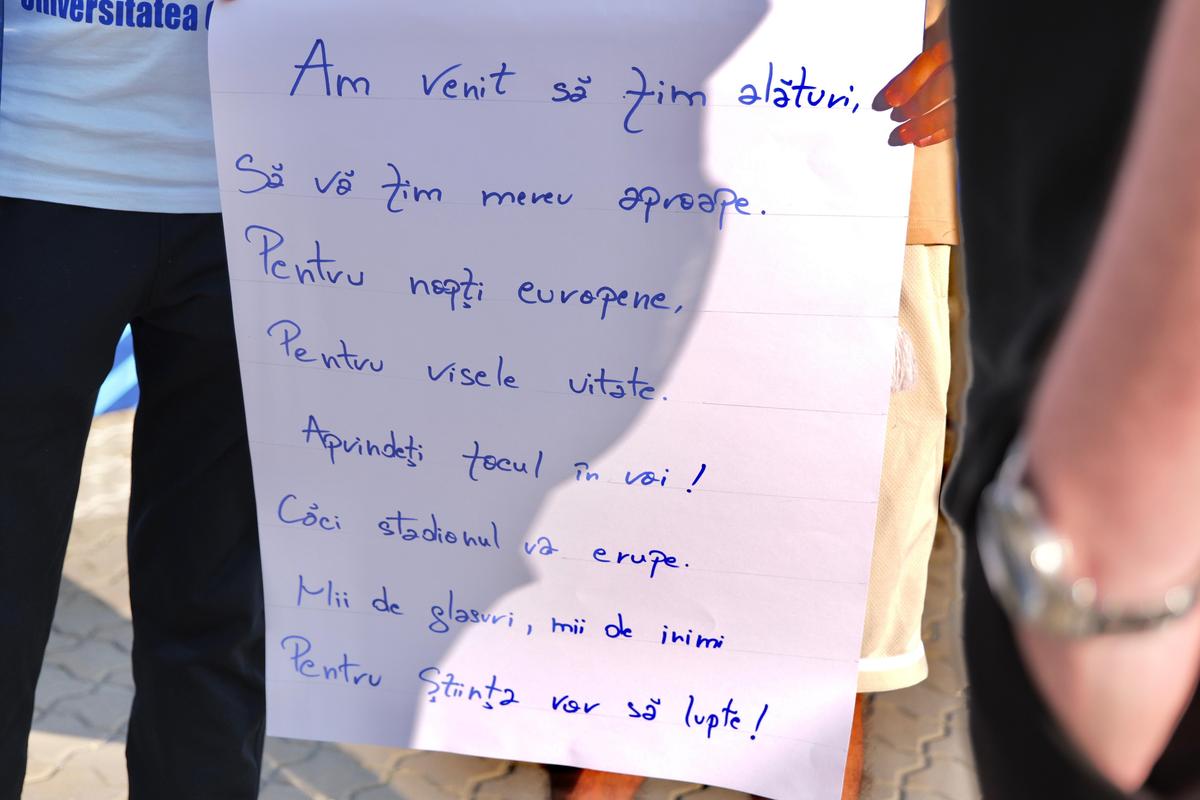 Universitatea
Am venit să fim alături,
Să vă fim mereu aproape.
Pentru nopți europene,
Pentru visele uitate.
Aprindeți focul în voi!
Căci stadionul va erupe.
Mii de glasuri, mii de inimi
Pentru Știința vor să lupte!